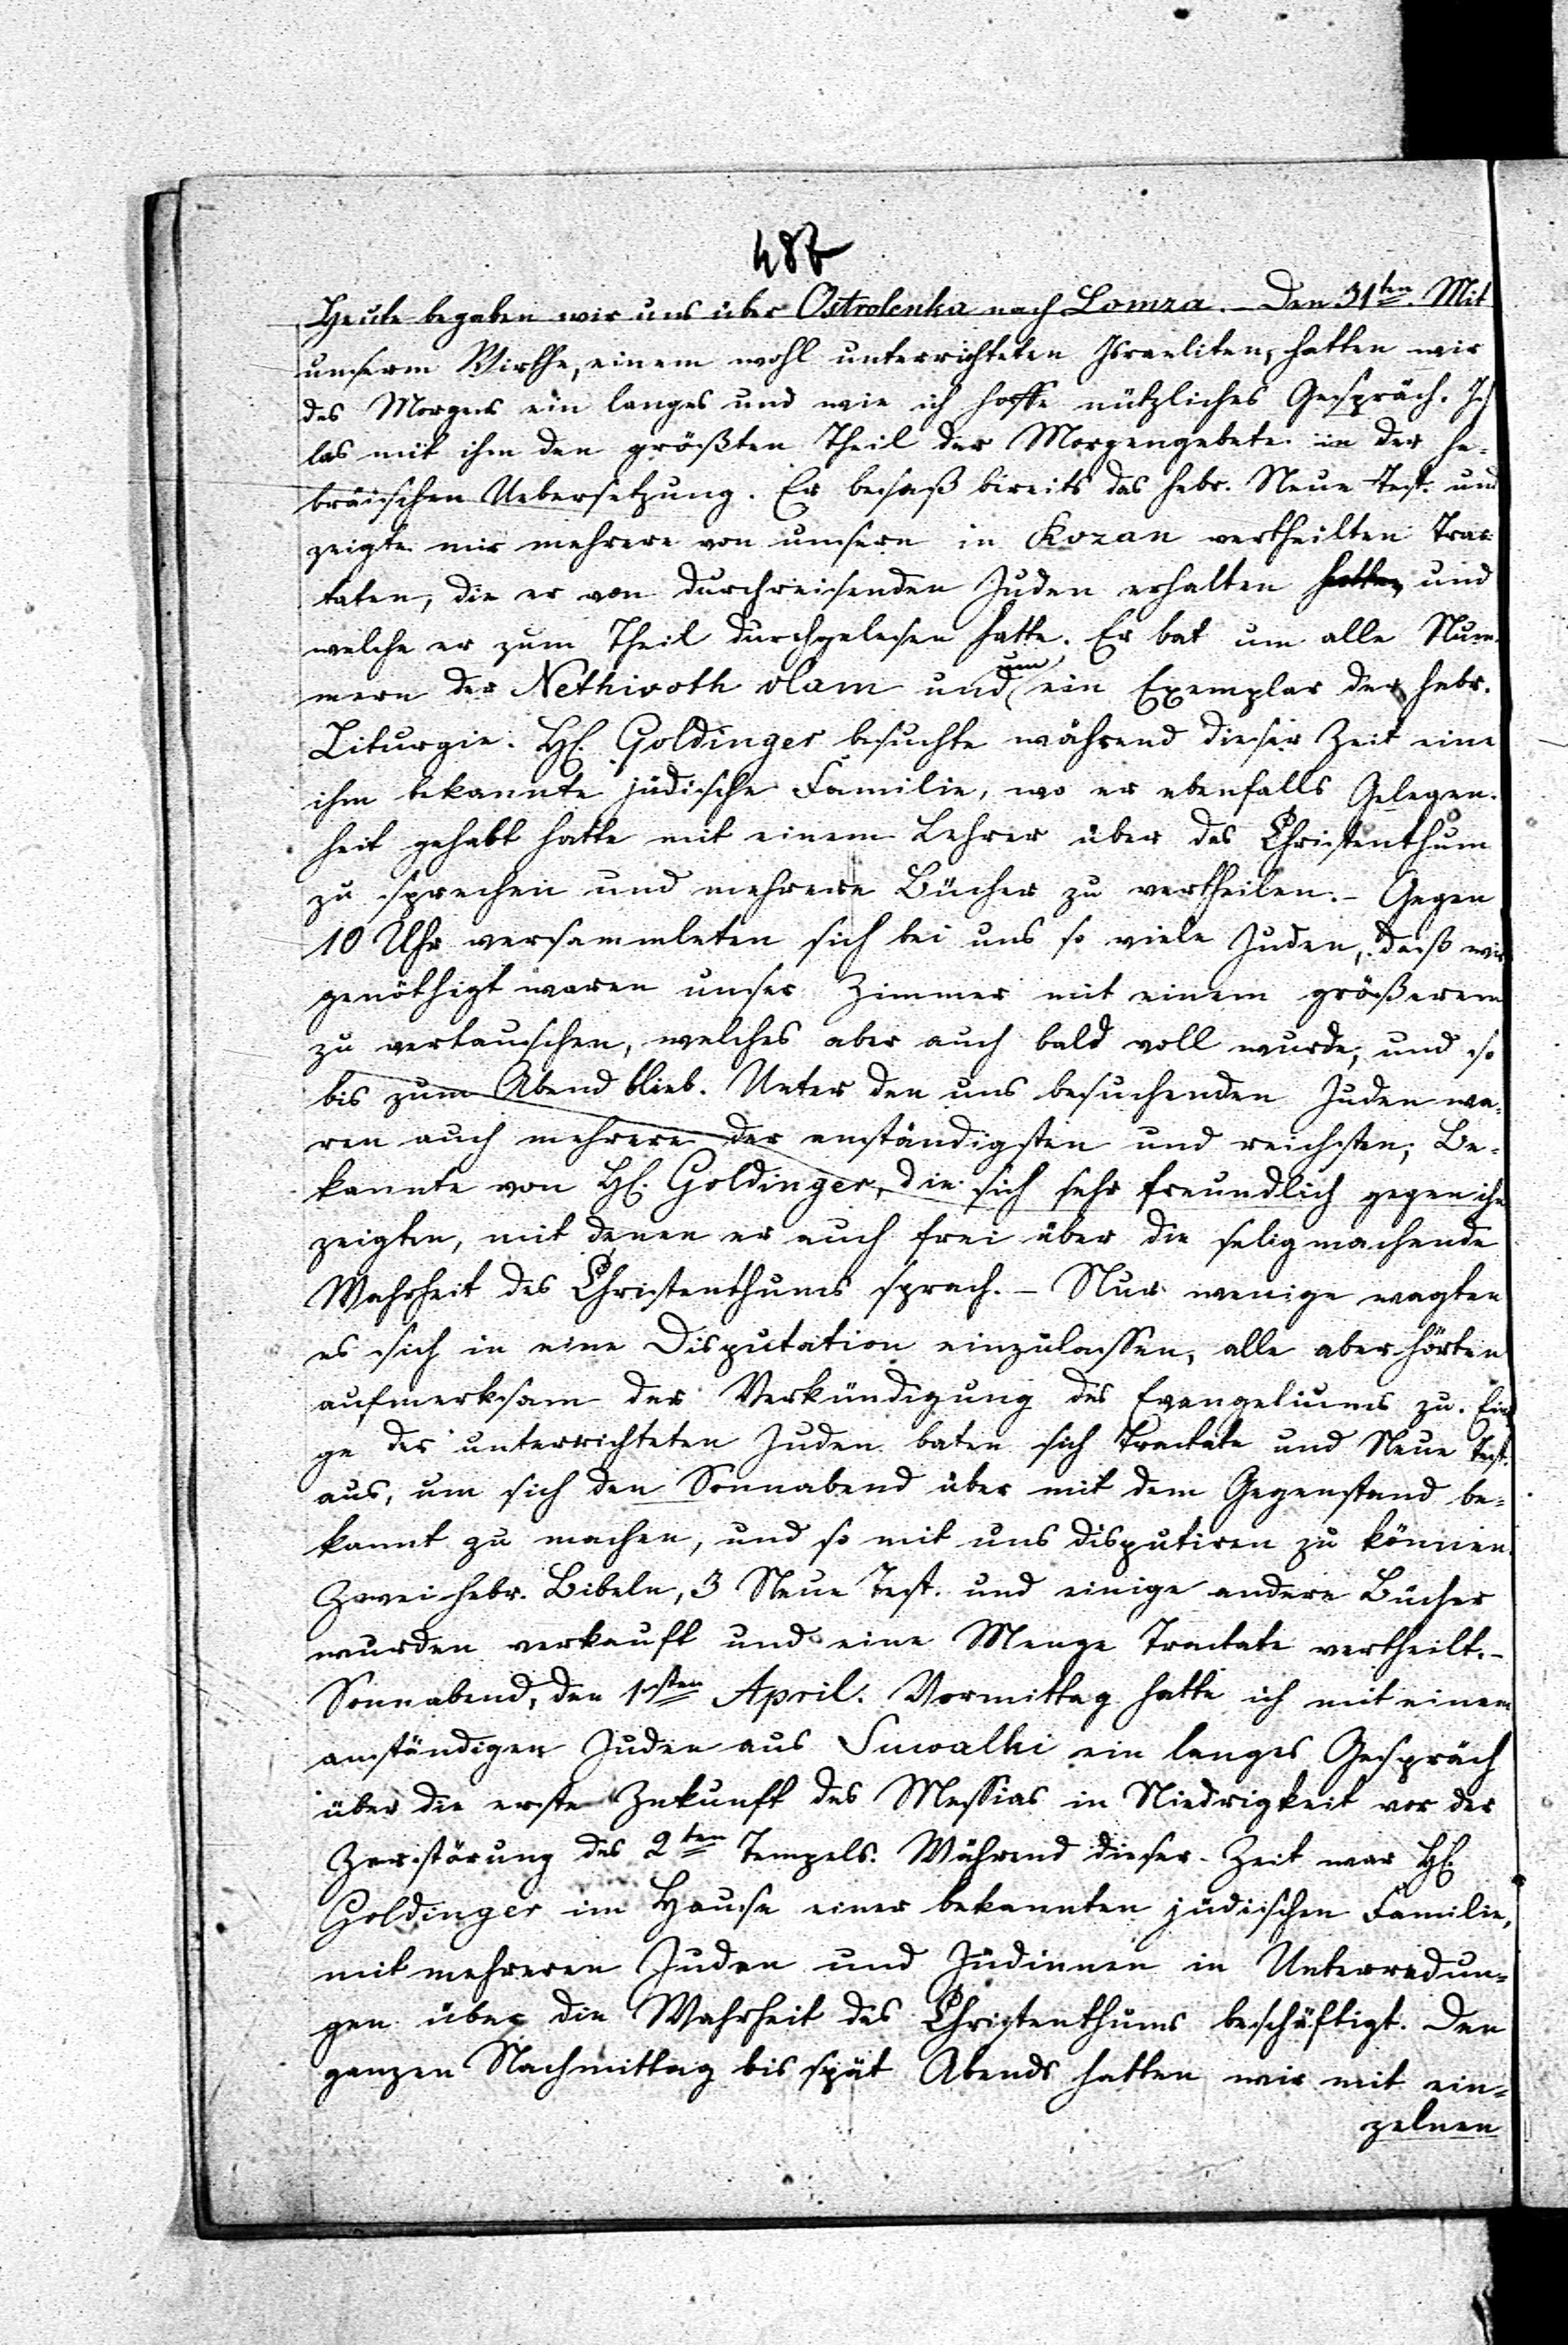 486
Heute begaben wir uns über Ostrolenka nach Lomza. – Den 31ten. Mit
unserm Wirthe, einem wohl unterrichteten Israeliten, hatten wir
des Morgens ein langes und wie ich hoffe nützliches Gespräch. Ich
las mit ihm den größten Theil der Morgengebete in der he-
bräischen Uebersetzung. Er besaß bereits das hebr. Neue Test. und
zeigte mir mehrere von unsern in Rozan vertheilten Trac-
taten, die er von durchreisenden Juden erhalten hatte, und
welche er zum Theil durchgelesen hatte. Er bat um alle Num-
mern der Nethivoth olam und um ein Exemplar der hebr.
Liturgie. H. Goldinger besuchte während dieser Zeit eine
ihm bekannte jüdische Familie, wo er ebenfalls Gelegen-
heit gehabt hatte mit einem Lehrer über das Christenthum
zu sprechen und mehrere Bücher zu vertheilen. – Gegen
10 Uhr versammleten sich bei uns so viele Juden, daß wir
genöthigt waren unser Zimmer mit einem größerem
zu vertauschen, welches aber auch bald voll wurde, und so
bis zum Abend blieb. Unter den uns besuchenden Juden wa-
ren auch mehrere der anständigsten und reichsten, Be-
kannte von H. Goldinger, die sich sehr freundlich gegen ihn
zeigten, mit denen er auch frei über die seligmachende
Wahrheit des Christenthums sprach. – Nur wenige wagten
es sich in eine Disputation einzulassen, alle aber hörten
aufmerksam der Verkündigung des Evangeliums zu. Eini
ge der unterrichteten Juden baten sich Tractate und Neue Test.
aus, um sich den Sonnabend über mit dem Gegenstand be-
kannt zu machen, und so mit uns disputiren zu können.
Zwei hebr. Bibeln, 3 Neue Test. und einige andere Bücher
wurden verkauft und eine Menge Tractate vertheilt. –
Sonnabend, den 1sten April. Vormittag hatte ich mit einem
anständigen Juden aus Suwalki ein langes Gespräch
über die erste Zukunft des Messias in Niedrigkeit vor der
Zerstörung des 2ten Tempels. Während dieser Zeit war H.
Goldinger im Hause einer bekannten jüdischen Familie,
mit mehreren Juden und Jüdinnen in Unterredun-
gen über die Wahrheit des Christenthums beschäftigt. Den
ganzen Nachmittag bis spät Abends hatten wir mit ein-
zelnen